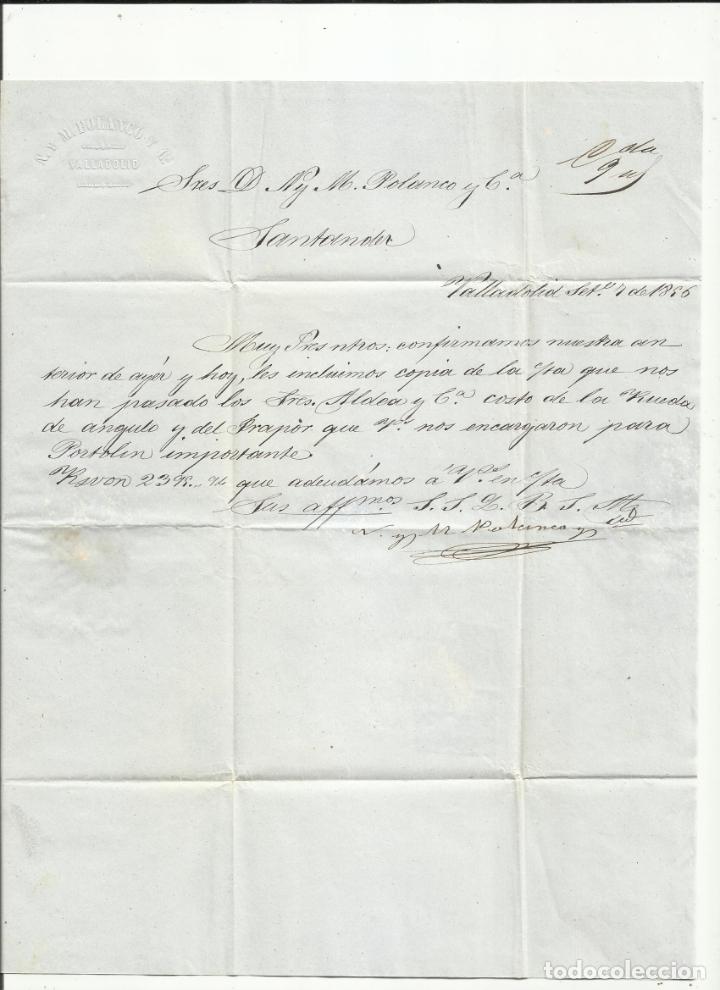 N. Y M. POLANCO Y Cª
VALLADOLID
Sres D. N y M. Polanco y C.ª
Santander
Valladolid Set.e 7 de 1856
Muy Sres ntros: confirmamos nuestra an
terior de ayér y hoy, les incluimos copia de la c/ta que nos
han pasado los Sres. Aldea y C.ª costo de la Rueda
de angulo y del que V.s nos encargaron para
Portolin importante
R.s von 23 que adeudámos a V.s en c/ta
Sus aff.mos S. S. Q. B. S. M.
N. y M Polanco y
todocoleccion